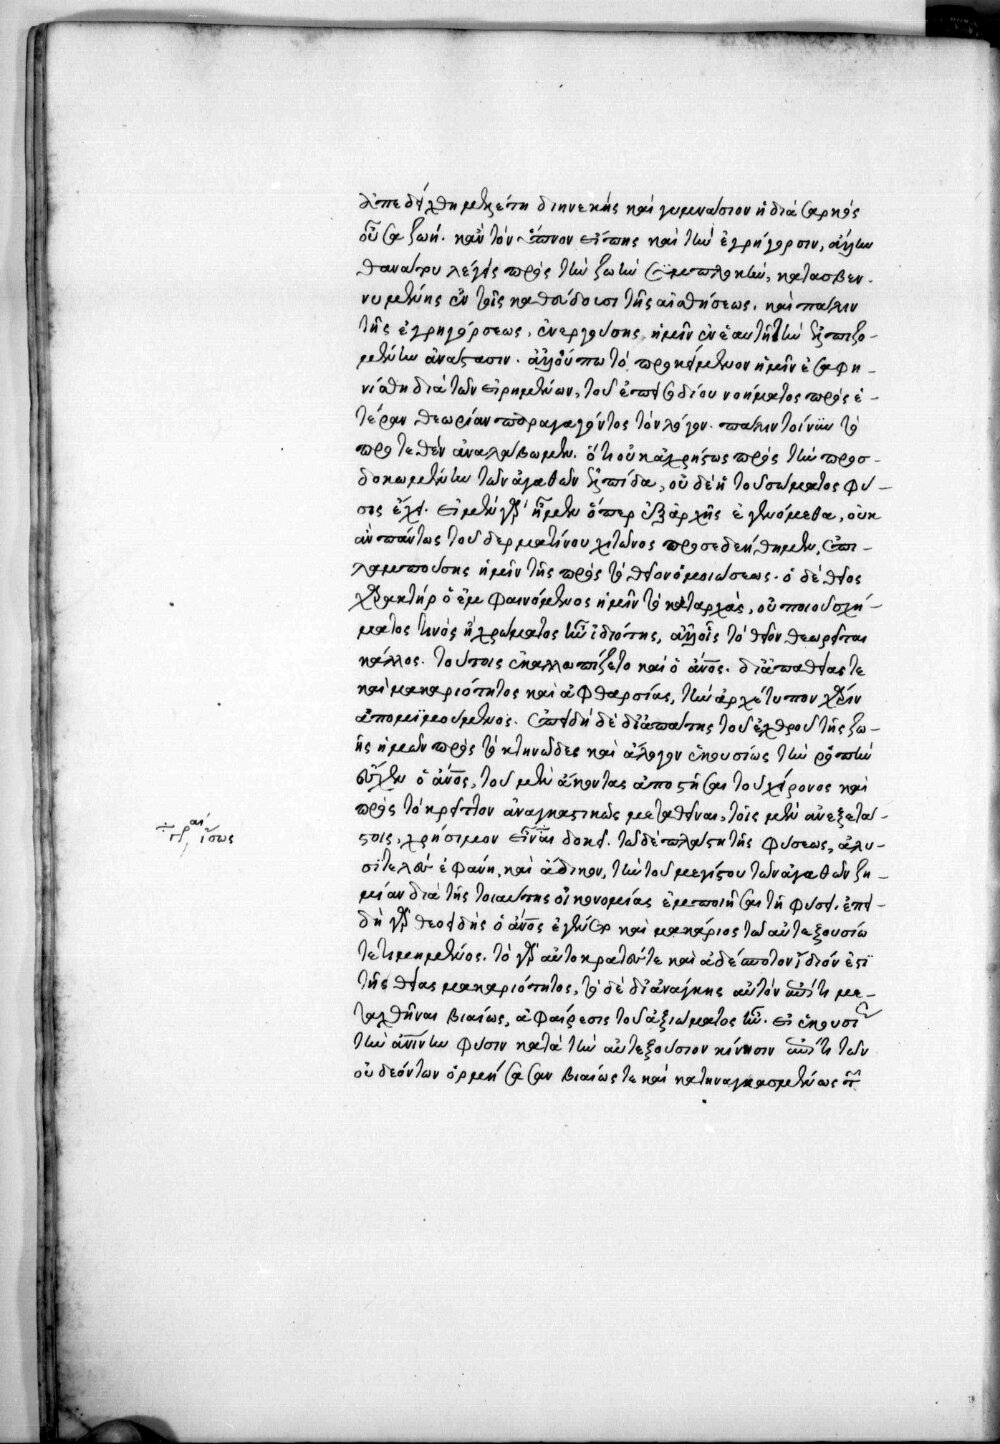 ἀπεδείχθη μελέτη διηνεκὴς καὶ γυμνάσιον ἡ διὰ σαρκὸς
οὖσα ζωή. κἂν τὸν ὕπνον εἴπῃς καὶ τὴν ἐγρήγορσιν, ἄλλην
θανάτου λέγεις πρὸς τὴν ζωὴν συμπλοκὴν, κατασβεν-
νυμένης ἐν τοῖς καθεύδουσι τῆς αἰσθήσεως. καὶ πάλιν
τῆς ἐγρηγόρσεως, ἐνεργούσης ἡμῖν ἐν ἑαυτῆ τὴν ἐλπιζο-
μένην ἀνάστασιν. ἀλλ' οὔπω τὸ προκείμενον ἡμῖν ἐσαφη-
νίσθη διὰ τῶν εἰρημένων, τοῦ ἐπεισοδίου νοήματος πρὸς ἑ-
τέραν θεωρίαν παραγαγόντος τὸν λόγον. πάλιν τοίνυν τὸ
προτεθὲν ἀναλάβωμεν. ὅτι οὐκ ἄχρηστος πρὸς τὴν προσ-
δοκωμένην τῶν ἀγαθῶν ἐλπίδα, οὐδὲ ἡ τοῦ σώματος φύ-
σις ἔχει. εἰ μὲν γὰρ ἦμεν ὅπερ ἐξ ἀρχῆς ἐγενόμεθα, οὐκ
ἂν πάντως τοῦ δερματίνου χιτῶνος προσεδεήθημεν, ἐπι-
λαμπούσης ἡμῖν τῆς πρὸς τὸ θεῖον ὁμοιώσεως. ὁ δὲ θεῖος
χαρακτὴρ ὁ ἐμφαινόμενος ἡμῖν τὸ καταρχὰς, οὐ ποιοῦ σχή-
ματος τινὸς ἢ χρώματος ἦν ἰδιότης, ἀλλ' οἷς τὸ θεῖον θεωρεῖται
κάλλος. τούτοις ἐκαλλωπίζετο καὶ ὁ ἄνος. δι' ἀπαθείας τε
καὶ μακαριότητος καὶ ἀφθαρσίας, τὴν ἀρχέτυπον χάριν
ἀπομιμούμενος. ἐπειδὴ δὲ δι' ἀπάτης τοῦ ἐχθροῦ τῆς ζω-
ῆς ἡμῶν πρὸς τὸ κτηνῶδες καὶ ἄλογον ἑκουσίως τὴν ῥοπὴν
ἔσχεν ὁ ἄνος, τοῦ μὲν ἄκοντας ἀποστῆσαι τοῦ χείρονος καὶ
πρὸς τὸ κρεῖττον ἀναγκαστικῶς μεταθεῖναι, τοῖς μὲν ἀνεξετά-
στοις, χρήσιμον εἶναι δοκεῖ. τῶ δὲ πλάστη τῆς φύσεως, ἀλυ-
σιτελὲς ἐφάνη, καὶ ἄδικον, τὴν τοῦ μεγίστου τῶν ἀγαθῶν ζη-
μίαν διὰ τῆς τοιαύτης οἰκονομίας ἐμποιῆσαι τῆ φύσει. ἐπει-
δὴ γὰρ θεοειδὴς ὁ ἄνος ἐγένετο καὶ μακάριος τῶ αὐτεξουσίω
τετιμημένος. τὸ γὰρ αὐτοκρατές τε καὶ ἀδέσποτον ἴδιόν ἐστι
τῆς θείας μακαριότητος, τὸ δὲ δι' ἀνάγκης αὐτὸν ἐπί τι με-
ταχθῆναι βιαίως, ἀφαίρεσις τοῦ ἀξιώματος ἦν. εἰ ἑκουσίως
τὴν ἀνίνην φύσιν κατὰ τὴν αὐτεξούσιον κίνησιν ἐπί τι τῶν
οὐ δεόντων ὁρμήσασαν βιαίως τε καὶ κατηναγκασμένως
ἴσως